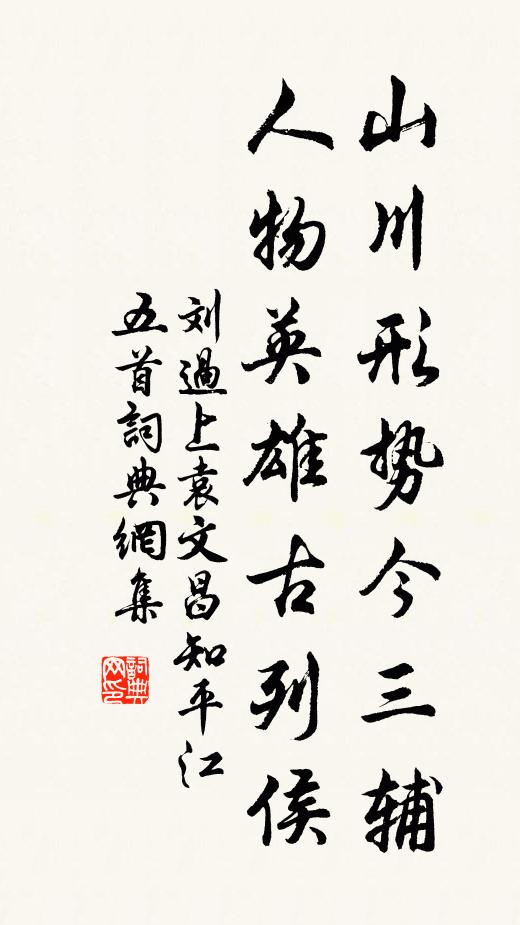 山川形势今三辅
人物英雄古列侯
刘過上袁文昌知平江
五首詞典網集
詞典网印